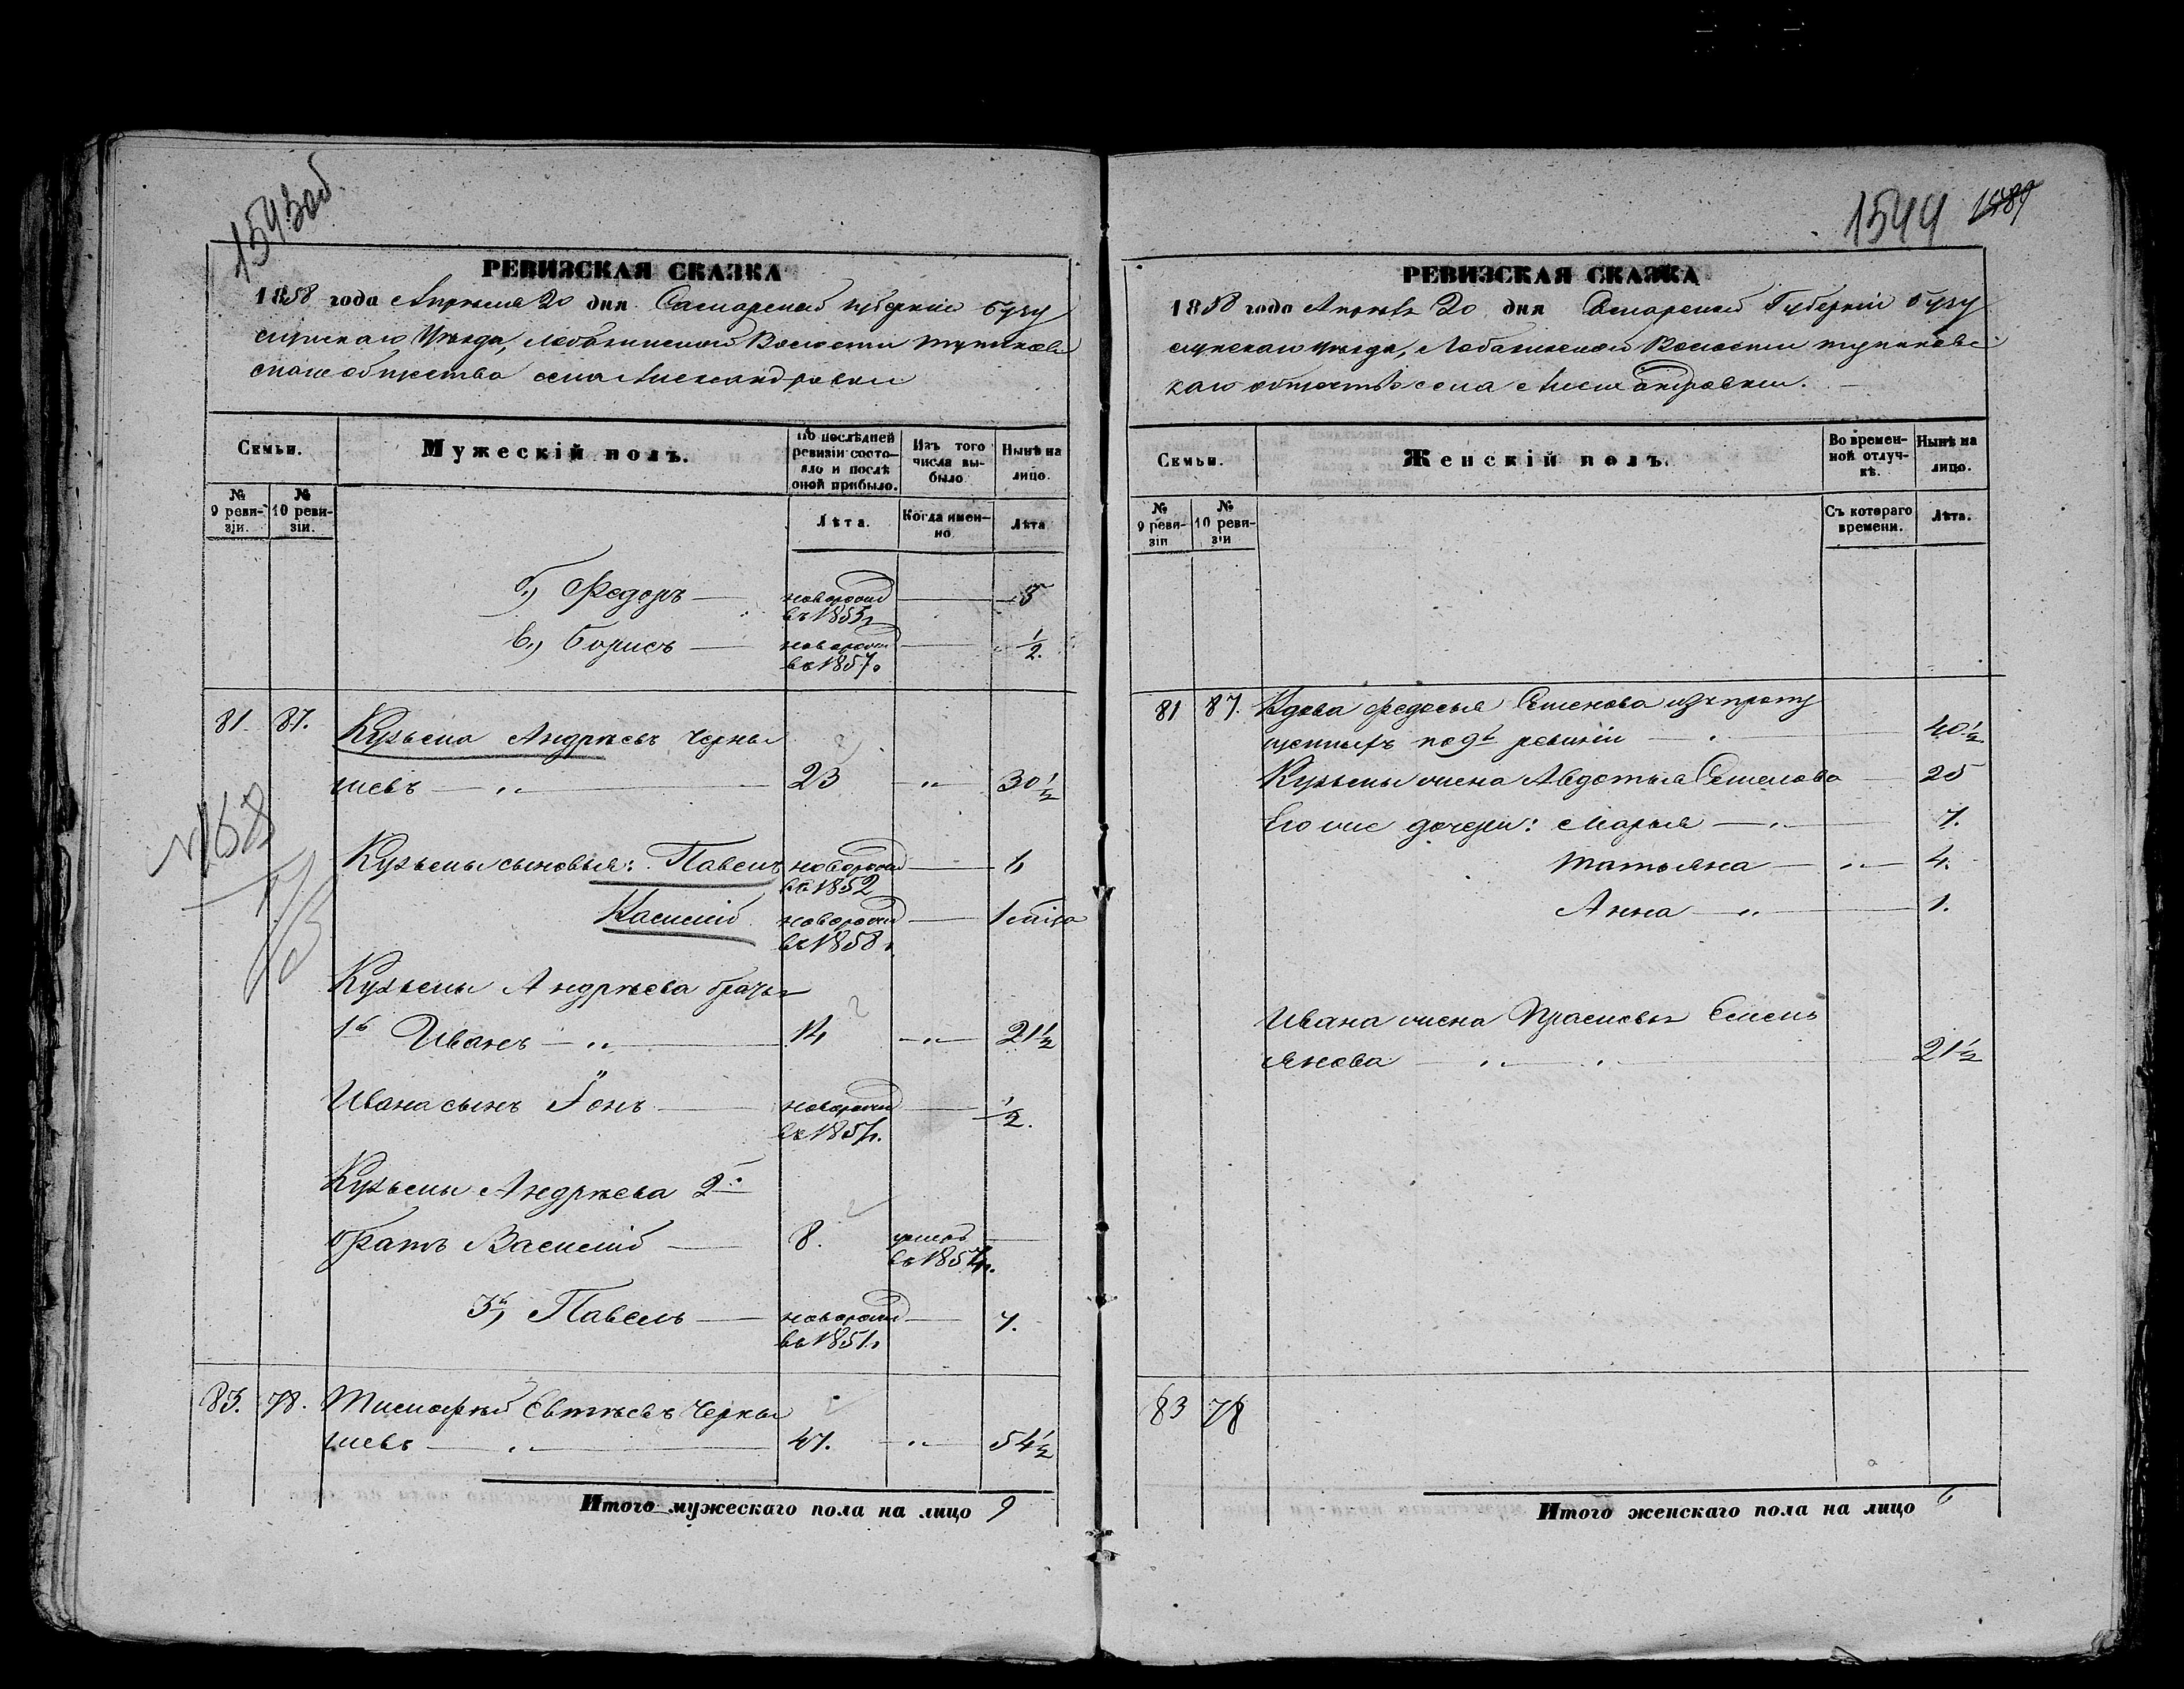 1543об
РЕВИЗСКАЯ СКАЗКА
1858 года Апреля 20 дня Самарской губерніи Бузу
лукскаго Уѣзда, Лобазинской Волости
общества села Александровки
Семьи.
Мужескій полъ.
По послѣдней ревизіи состояло и послѣ оной прибыло.
Изъ того числа выбыло.
Нынѣ на лицо.
№ 9 ревизіи.
№ 10 ревизіи.
Лѣта.
Когда именно.
Лѣта
б) Федоръ новорожд въ 1853 5
в) Борисъ новорожд въ 1857 ½
81. 87. Кузьма Андреевъ Черны
шевъ 23 30½
№ 168
Кузьмы сыновья: Павелъ новорожд въ 1852 6
Василій новорожд въ 1858 1
Кузьмы Андреева братья
1й Иванъ 14 21½
Ивана сынъ новорожд въ 1857. ½.
Кузьмы Андреева 2й
братъ Василій 8. въ 1857
3й Павелъ новорожд въ 1851. 7.
83. 78. Евтѣевъ Черны
шевъ 47. 54½
Итого мужескаго пола на лицо 9
1544 1589
РЕВИЗСКАЯ СКАЗКА
1858 года Апрель 20 дня Самарской Губерніи Бузу
лукскаго уѣзда, Лобазинской Волости
каго общества села Александровки.
Семьи.
Женскій полъ.
Во временной отлучкѣ.
Нынѣ на лицо.
№ 9 ревизіи
№ 10 ревизіи
Съ котораго времени.
Лѣта.
81 87. Вдова Федосья Семенова изъ пропу
щенныхъ по 9й ревизіи 40½
Кузьмы жена Авдотья Семенова 25
Его же дочери: Марья 7.
Татьяна 4.
Анна 1.
Ивана жена Прасковья Емель
янова 21½
83 78
Итого женскаго пола на лицо 6